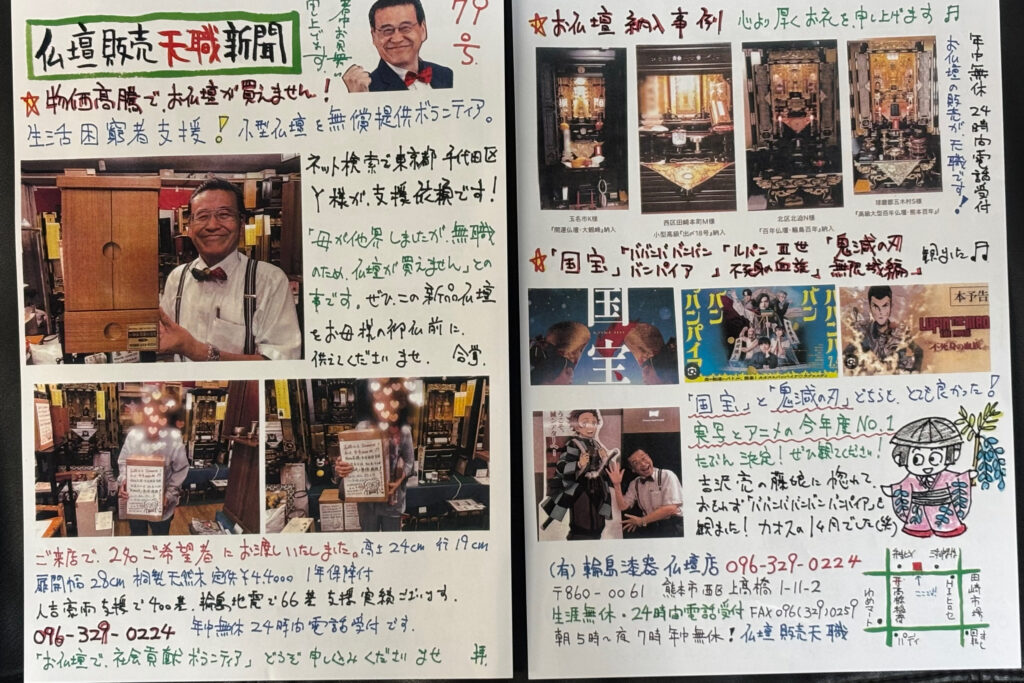 仏壇販売天職新聞
79号
☆物価高騰で、お仏壇が買えません!
生活困窮者支援!小型仏壇を無償提供ボランティア。
ネット検索で東京都千代田区
Y様が、支援依頼です!
「母が他界しましたが、無職
のため、仏壇が買えません」との
事です。ぜひ、この新品仏壇
をお母様の御仏前に、
供えてくださいませ。合掌
ご来店で、2名ご希望者にお渡しいたしました。高さ24cm 行19cm
扉開幅28cm 桐製天然木 定価¥44000 1年保障付
人吉豪雨支援で400基、輪島地震で66基支援実績ございます。
096-329-0224 年中無休24時間電話受付です。
「お仏壇で、社会貢献ボランティア」どうぞ申し込みくださいませ 拝、
☆お仏壇納入事例 心より厚くお礼を、申し上げます♬
年中無休24時間電話受付
お仏壇の販売が、天職です!
玉名市K様
『開運仏壇・大鶴峰』納入
西区田崎本町M様
小型高級『出〆18号』納入
北区北迫N様
『百年仏壇・輪島百年』納入
球磨郡五木村S様
『高級大型百年仏壇・熊本百年』
☆「国宝」「ババンババンバンバンパイア」「ルパン三世 不死身の血族」「鬼滅の刃 無限城編」観ました♬
国宝
バンババン
バンパイア
本予告
LUPIN THE IIIRD
不死身の血族
「国宝」と「鬼滅の刃」どちらも、とても良かった!
実写とアニメの今年度No.1
たぶん決定!ぜひ観てください!
吉沢亮の藤娘に惚れて、
おもわず「ババンババンバンバンパイア」も
観ました!カオスの1ヶ月でした(笑)
(有)輪島漆器仏壇店 096-329-0224
〒860-0061 熊本市西区上高橋1-11-2
生涯無休・24時間電話受付 FAX096(329)0259
朝5時〜夜7時 年中無休!仏壇販売天職
田崎市場
HIヒロセ
ゆめマート
パディ